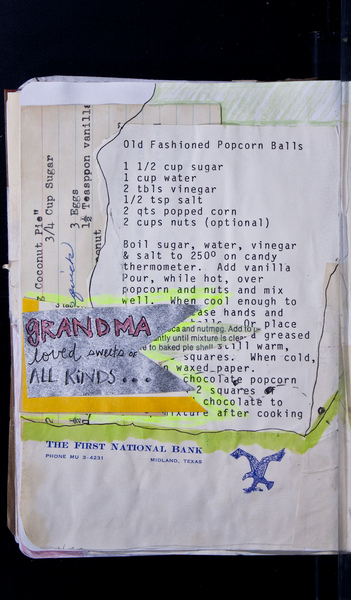 Old Fashioned Popcorn Balls
1 1/2 cup sugar
1 cup water
2 tbls vinegar
1/2 tsp salt
2 qts popped corn
2 cups nuts (optional)
Boil sugar, water, vinegar
& salt to 250° on candy
thermometer. Add vanilla
Pour, while hot, over
popcorn and nuts and mix
well. When cool enough to
ase hands and
Or place
d greased
still warm,
squares. When cold,
waxed paper.
chocolate popcorn
2 squares of
chocolate to
mixture after cooking
Coconut Pie"
3/4 Cup Sugar
3 Eggs
1½ Teasppon vanilla
quick
and nutmeg. Add to
ntly until mixture is clear
e to baked pie shell
GRANDMA
loved sweets of
ALL KINDS...
THE FIRST NATIONAL BANK
PHONE MU 3-4231
MIDLAND, TEXAS